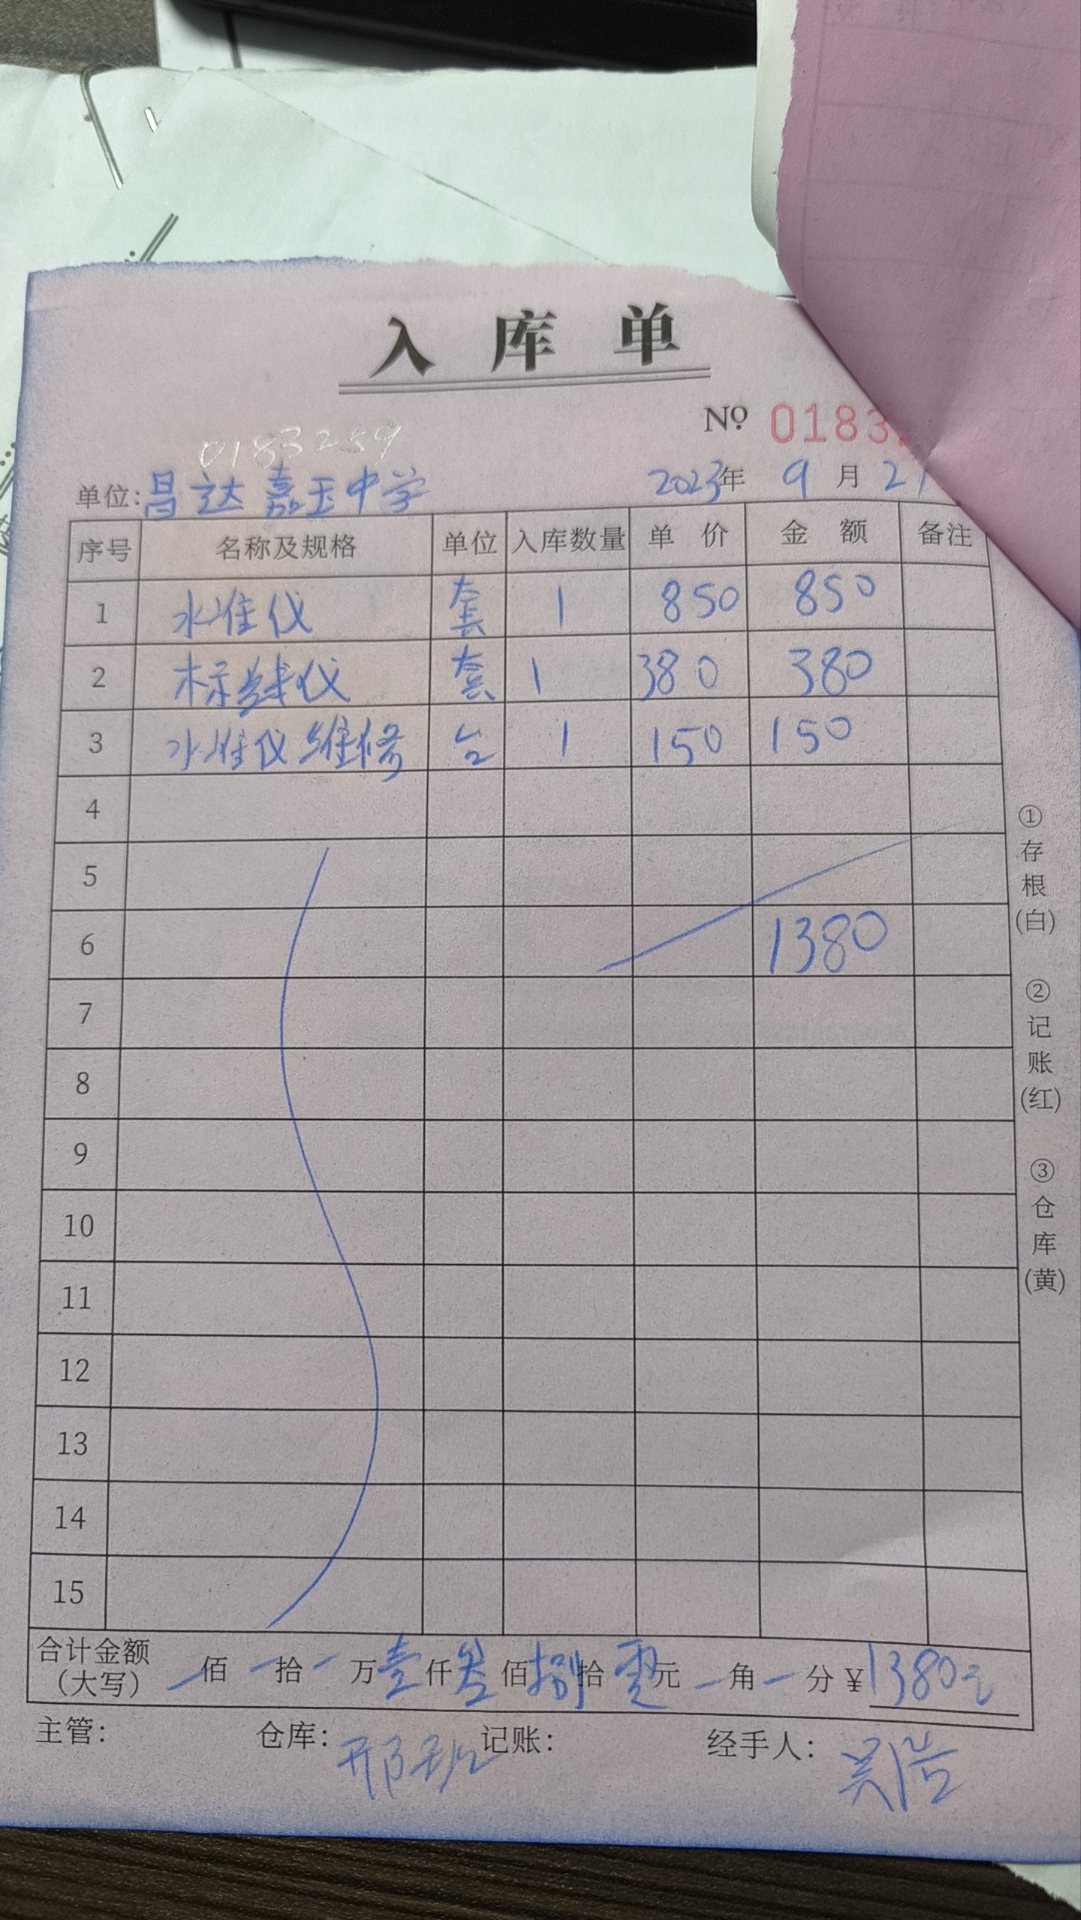 入库单
№ 0183
0183259
单位:昌达嘉玉中学 2023年 9月 21
序号 名称及规格 单位 入库数量 单价 金额 备注
1 水准仪 套 1 850 850
2 标线仪 套 1 380 380
3 水准仪维修 台 1 150 150
4
5
6 1380
7
8
9
10
11
12
13
14
15
合计金额(大写) 佰 拾 万壹仟叁佰捌拾零元 角 分 ¥1380元
主管: 仓库:邢班 记账: 经手人:吴浩
①存根(白)
②记账(红)
③仓库(黄)